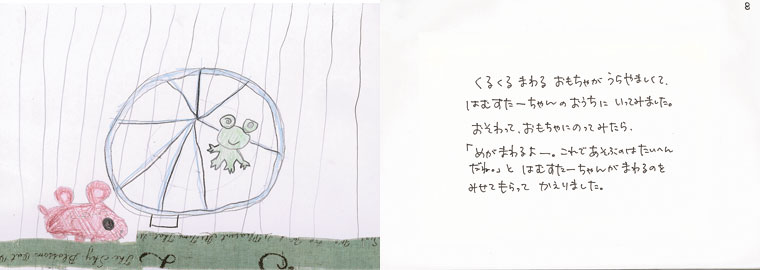 8
くるくる まわる おもちゃが うらやましくて、
はむすたーちゃんの おうちに いってみました。
おそわって、おもちゃにのってみたら、
「めがまわるよー。これであそぶのはたいへん
だね。」と はむすたーちゃんが まわるのを
みせてもらって かえりました。
The Sky Blossom